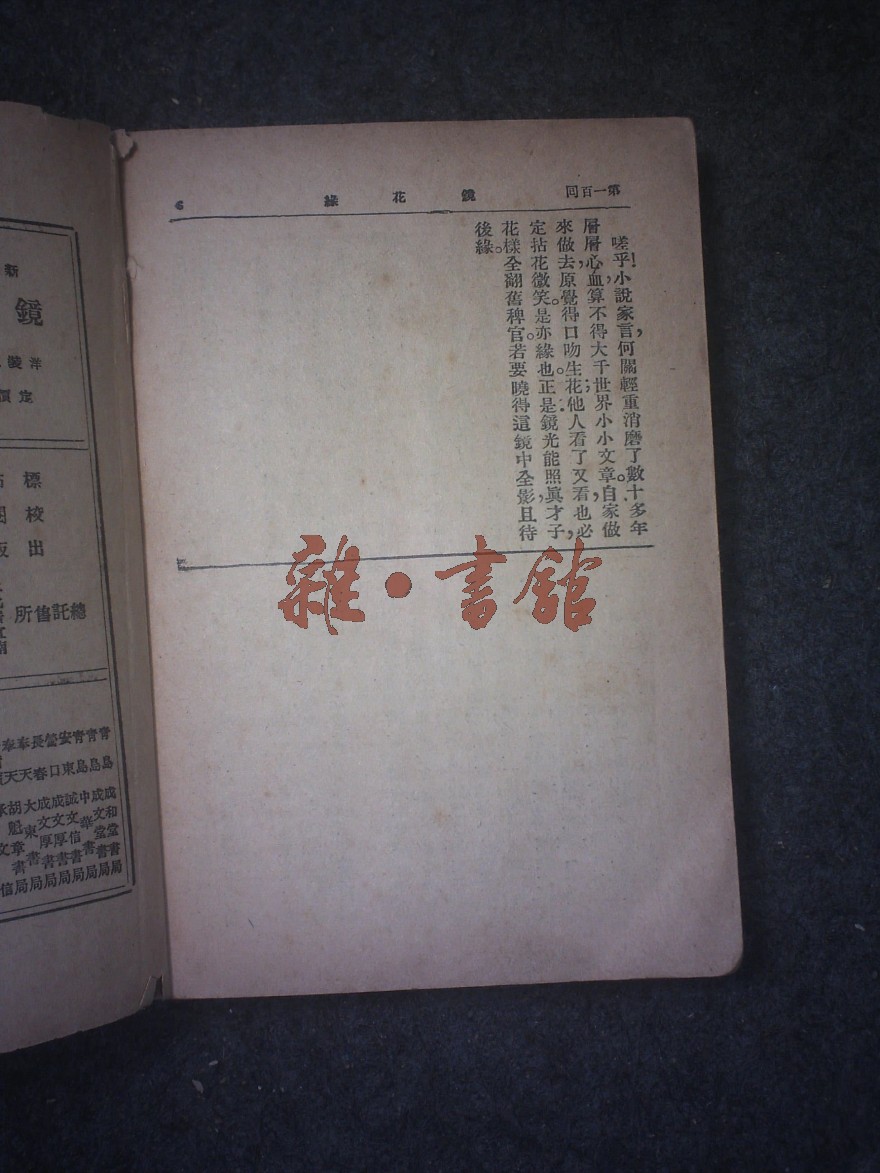 第一百回
鏡花緣
6
嗟乎!小說家言,何關輕重。消磨了數十多年
層層心血,算不得大千世界小小文章,自家做
來做去,原覺得口吻生花;他人看了又看也必
定拈花微笑。是亦緣也。正是:鏡光能照眞才子,
花樣全翻舊稗官。若要曉得這鏡中全影,且待
後緣。
新
鏡
洋裝
定價
標
校
出
總託售所
青島成和堂書局
青島成文堂書局
青島中華書局
安東誠文信書局
營口成文厚書局
長春成文厚書局
奉天大東書局
奉天胡魁章書局
雜·書館